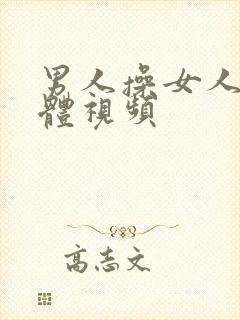 男人操女人
體視頻
高志文